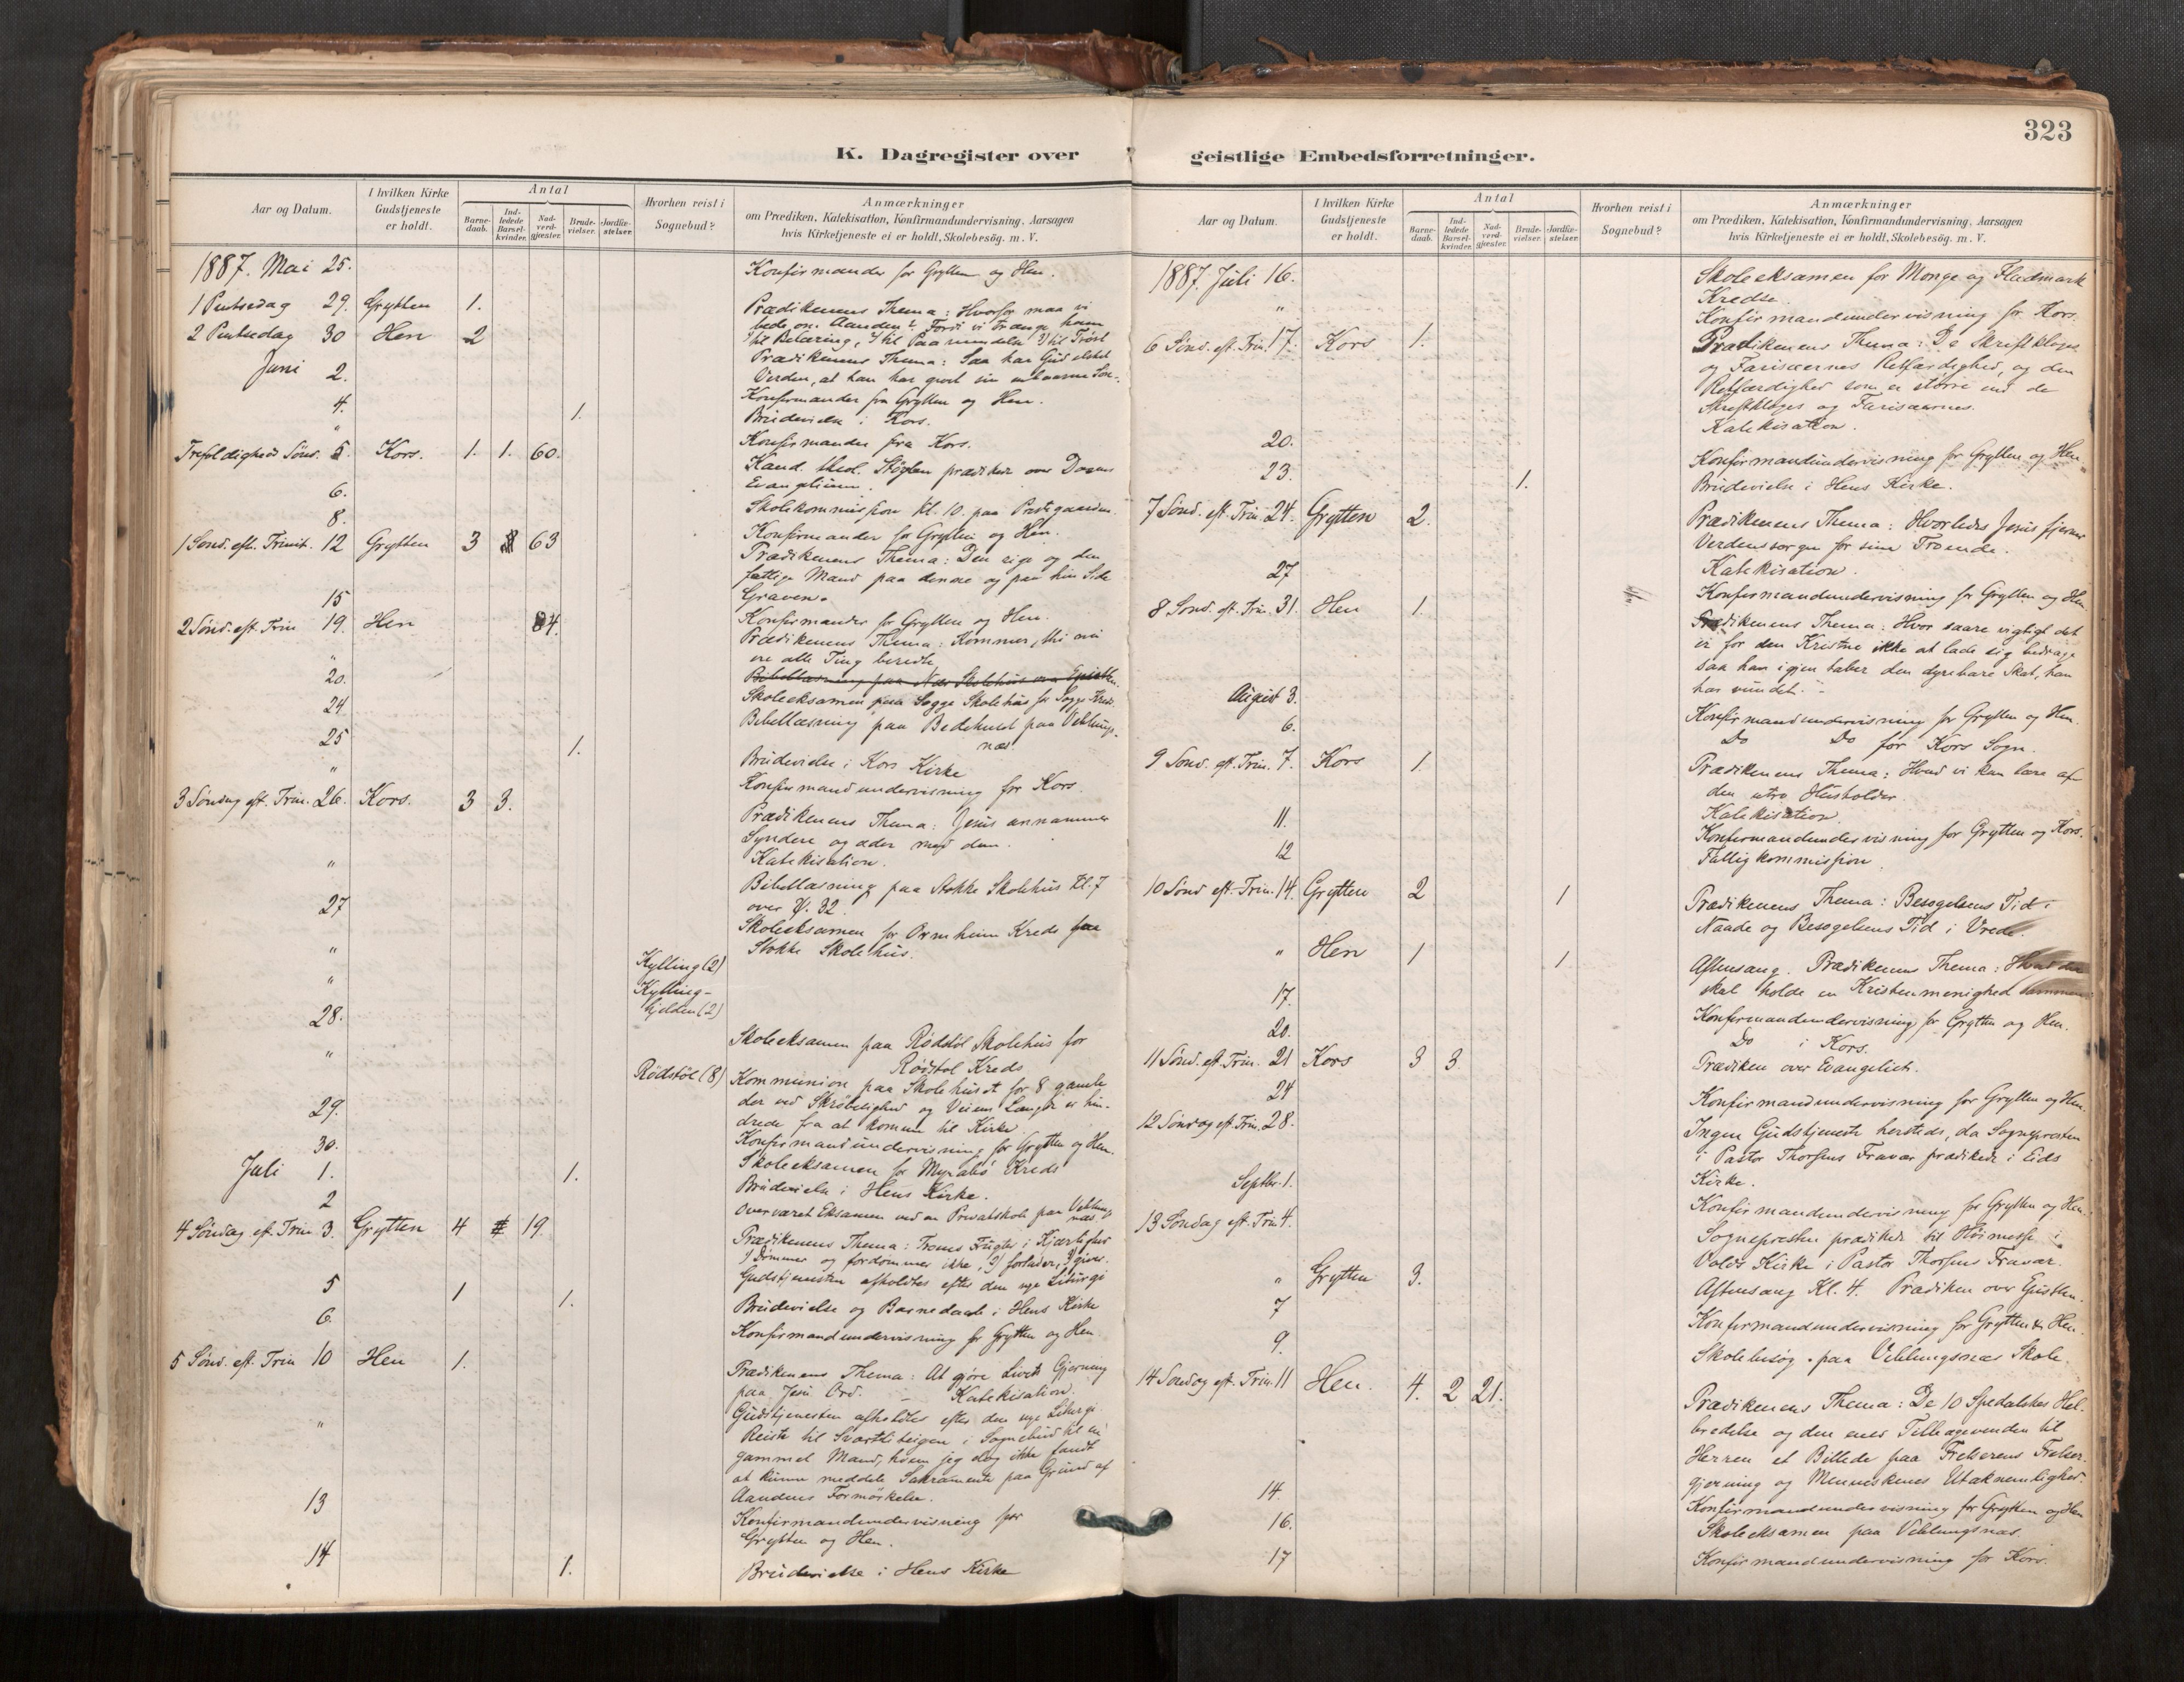 323
K. Dagregister over
Aar og Datum.
I hvilken Kirke Gudstjeneste er holdt.
Antal
Barne-daab.
Ind-ledede Barsel-kvinder.
Nad-verd-gjæster.
Brude-vielser.
Jordfæ-stelser.
Hvorhen reist i Sognebud?
Anmærkninger
om Prædiken, Katekisation, Konfirmandundervisning, Aarsagen
hvis Kirketjeneste ei er holdt, Skolebesög. m. V.
1887. Mai 25.
Konfirmander for Grytten og Hen.
1 Pintsedag 29. Grytten 1.
Prædikenens Thema: Hvorfor maa vi
bede om Aanden? Fordi vi trænge ham
2 Pintsedag 30 Hen 2
til Belæring, 2) til Paamindelse 3) til Trøst
Prædikenens Thema: Saa har Gud elsket
Juni 2.
Verden, at han har givet sin enbaarne Søn.
Konfirmander fra Grytten og Hen.
4. 1.
Brudevielse i Kors.
"
Konfirmander fra Kors.
Trefoldigheds Sönd. 5 Kors. 1. 1. 60.
Kand. theol. Støylen prædikede over Dagens
Evangelium.
6.
Skolekommission kl. 10. paa Præstegaarden.
8.
Konfirmander for Grytten og Hen.
1 Sönd. eft. Trinit. 12 Grytten 3 63
Prædikenens Thema: Den rige og den
fattige Mand paa denne og paa hin Side
Graven.
15
Konfirmander for Grytten og Hen.
2 Sönd. eft. Trin 19. Hen 84.
Prædikenens Thema: Kommer, thi nu
ere alle Ting beredte
"
Bibellæsning paa Næs Skolehus over
20.
Skoleeksamen paa Sogge Skolehus for Sogge Kreds.
24
Bibellæsning paa Bedehuset paa Veblungs-
næs
25 1.
Brudevielse i Kors Kirke
"
Konfirmandundervisning for Kors.
3 Söndag eft. Trin. 26. Kors. 3 3.
Prædikenens Thema: Jesus annammer
Syndere og æder med dem.
Katekisation.
"
Bibellæsning paa Stokke Skolehus Kl. 7
over Ψ. 32.
27
Skoleeksamen for Ormheim Kreds paa
Stokke Skolehus.
" Kylling (2)
" Kylling-
hjelden (2)
28.
Skoleeksamen paa Rødstöl Skolehus for
Rødstol Kreds
" Rödstöl (8)
Kommunion paa Skolehuset for 8 gamle
der ved Skrøbelighed og Veiens Længde er hin-
drede fra at komme til Kirke.
29.
Konfirmandundervisning for Grytten og Hen.
30.
Skoleeksamen for Myrabö Kreds
Juli 1. 1.
Brudevielse i Hens Kirke.
2
Overværet Eksamen ved en Privatskole paa Veblungs
næs.
4 Söndag eft. Trin 3. Grytten 4 19.
Prædikenens Thema: Troens Frugter i Kjærlighed
1) Dömmer og fordömmer ikke, 2) forlader, 3) giver.
Gudstjenesten afholdtes efter den nye Liturgi
5 1 1.
Brudevielse og Barnedaab i Hens Kirke
6.
Konfirmandundervisning for Grytten og Hen
5 Sönd. eft. Trin 10 Hen 1.
Prædikenens Thema: At gjöre Livets Gjerning
paa Jesu Ord. – Katekisation.
Gudstjenesten afholdtes efter den nye Liturgi
"
Reiste til Svartliteigen i Sognebud til en
gammel Mand, hvem jeg dog ikke fandt
at kunne meddele Sakramente paa Grund af
Aandens Formörkelse.
13
Konfirmandundervisning for
Grytten og Hen.
14 1.
Brudevielse i Hens Kirke
geistlige Embedsforretninger.
Aar og Datum.
I hvilken Kirke Gudstjeneste er holdt.
Antal
Barne-daab.
Ind-ledede Barsel-kvinder.
Nad-verd-gjæster.
Brude-vielser.
Jordfæ-stelser.
Hvorhen reist i Sognebud?
Anmærkninger
om Prædiken, Katekisation, Konfirmandundervisning, Aarsagen
hvis Kirketjeneste ei er holdt, Skolebesög. m. V.
1887. Juli 16.
Skoleeksamen for Monge og Fladmark
Kredse.
"
Konfirmandundervisning for Kors.
6 Sönd. eft. Trin. 17. Kors 1.
Prædikenens Thema: De Skriftkloges
og Farisæernes Retfærdighed, og den
Retfærdighed som er större end de
Skriftkloges og Farisæernes.
Katekisation.
20.
Konfirmandundervisning for Grytten og Hen
23. 1.
Brudevielse i Hens Kirke.
7 Sönd. eft. Trin. 24. Grytten 2.
Prædikenens Thema: Hvorledes Jesus fjerner
Verdenssorgen for sine Troende.
Katekisation.
27
Konfirmandundervisning for Grytten og Hen.
8 Sönd. eft. Trin. 31. Hen 1.
Prædikenens Thema: Hvor saare vigtigt det
er for den Kristne ikke at lade sig bedrage
saa han igjen taber den dyrebare Skat, han
har vundet. –
August 3.
Konfirmandundervisning for Grytten og Hen.
6.
Do Do for Kors Sogn.
9 Sönd. eft. Trin. 7. Kors 1.
Prædikenens Thema: Hvad vi kan lære af
den utro Husholder.
Katekisation.
11.
Konfirmandundervisning for Grytten og Kors.
12
Fattigkommission.
10 Sönd eft. Trin. 14. Grytten 2 1
Prædikenens Thema: Besøgelsens Tid i
Naade og Besøgelsens Tid i Vrede.
" Hen 1 1
Aftensang. Prædikenens Thema: Hvad der
skal holde en Kristenmenighed sammen.
17.
Konfirmandundervisning for Grytten og Hen.
20.
Do i Kors.
11 Sönd. eft. Trin. 21 Kors 3 3
Prædiken over Evangeliet.
24
Konfirmandundervisning for Grytten og Hen.
12 Söndag eft. Trin. 28.
Ingen Gudstjeneste hersteds, da Sognepresten
i Pastor Thorsens Fravær prædikede i Eids
Kirke.
Septbr. 1.
Konfirmandundervisning for Grytten og Hen.
13 Söndag eft. Trin 4.
Sognepresten prædikede til Höimesse i
Volds Kirke i Pastor Thorsens Fravær.
" Grytten 3.
Aftensang Kl. 4. Prædiken over
7
Konfirmandundervisning for Grytten & Hen.
9.
Skolebesög paa Veblungsnæs Skole.
14 Söndag eft. Trin. 11 Hen. 4. 2 21.
Prædikenens Thema: De 10 Spedalskes Hel-
bredelse og den enes Tilbagevenden til
Herren et Billede paa Frelserens Frelser-
gjerning og Menneskenes Utaknemlighed.
14.
Konfirmandundervisning for Grytten og Hen
16.
Skoleeksamen paa Veblungsnæs.
17
Konfirmandundervisning for Kors.